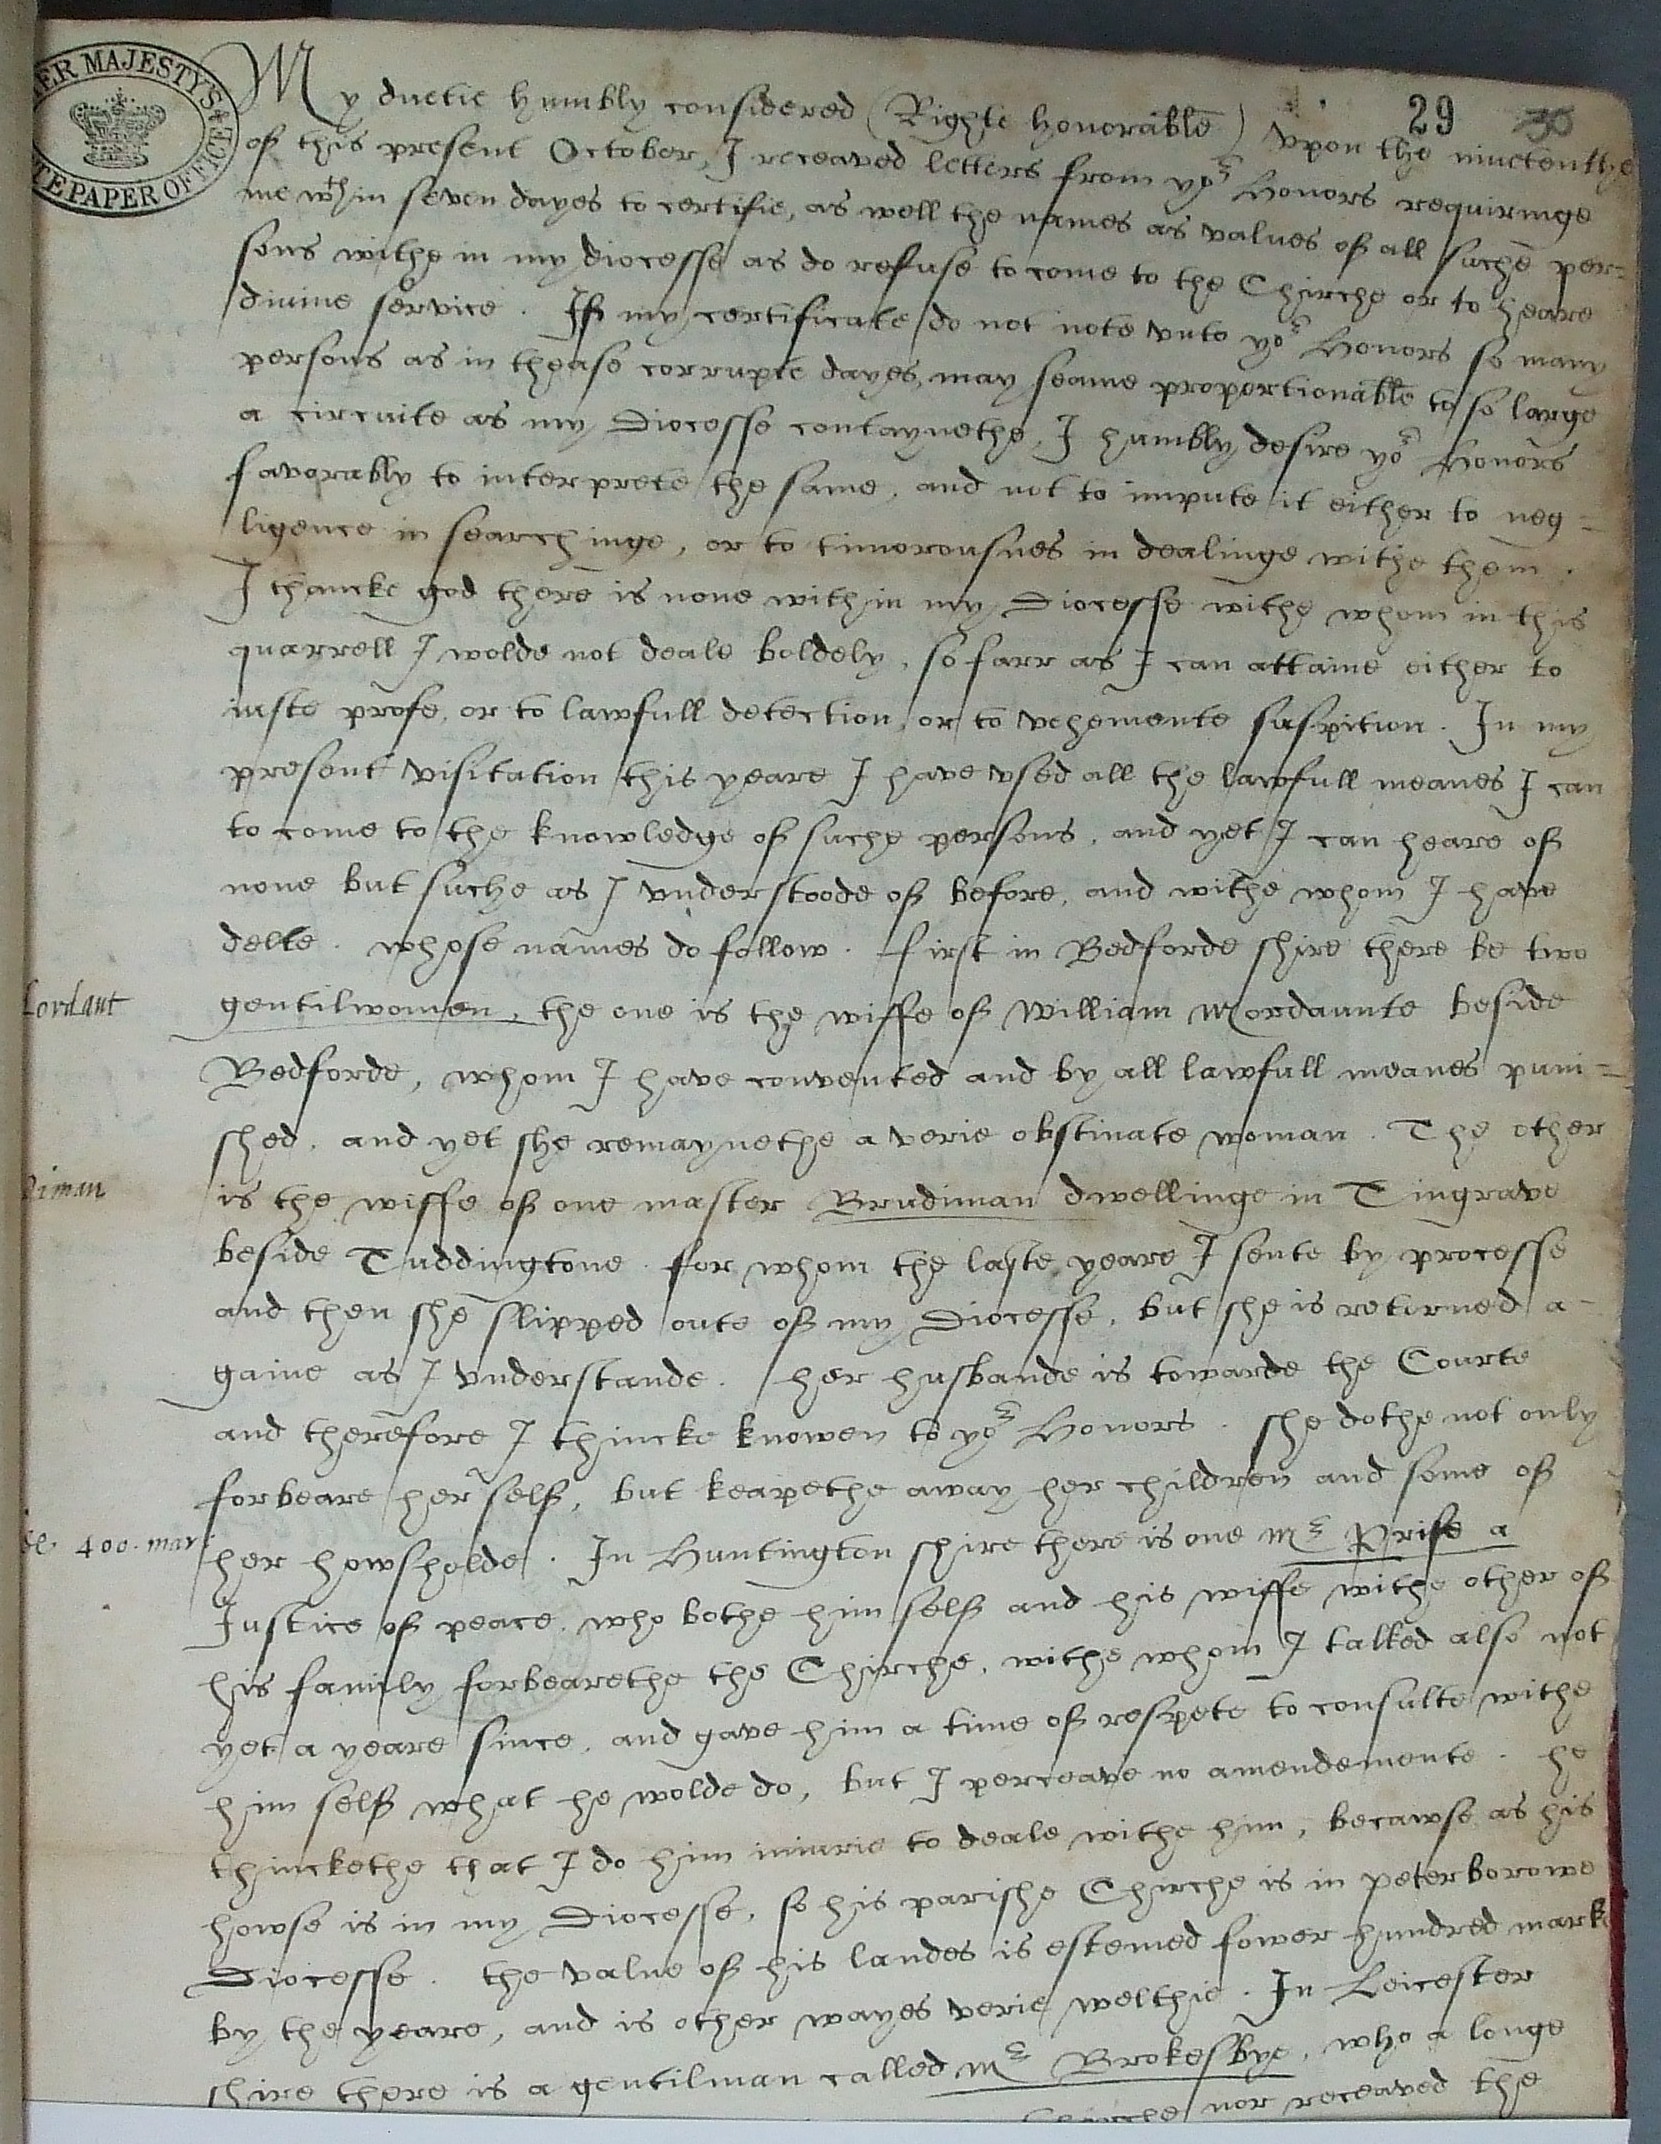 HER MAJESTY'S
STATE PAPER OFFICE
29 30
My duetie humbly considered (Righte honorable) vpon the ninetenthe
of this present October, I receaved letters from yor Honors requiringe
me wthin seven dayes to certifie, as well the names as values of all suche per=
sons withe in my diocesse as do refuse to come to the Chirche or to heare
divine service. If my certificate do not note vnto yor Honors so many
persons as in thease corrupte dayes, may seame proportionable to so large
a circuite as my Diocesse contaynethe, I humbly desire yor Honors
favorably to interprete the same, and not to impute it either to neg=
ligence in searchinge, or to timorousnes in dealinge withe them.
I thancke god there is none within my Diocesse withe whom in this
quarrell I wolde not deale boldely, so farr as I can attaine either to
iuste profe, or to lawfull detection, or to vehemente suspition. In my
present visitation this yeare I have vsed all the lawfull meanes I can
to come to the knowledge of suche persons, and yet I can heare of
none but suche as I vnderstoode of before, and withe whom I have
delte. whose names do follow. first in Bedforde shire there be two
Lordant
gentilwomen, the one is the wiffe of William Mordaunte beside
Bedforde, whom I have convented and by all lawfull meanes puni=
shed, and yet she remaynethe a verie obstinate woman. The other
diman
is the wiffe of one master Brudiman dwellinge in Tingrave
beside Tuddingtone. for whom the laste yeare I sente by processe
and then she slipped oute of my Diocesse, but she is returned a-
gaine as I vnderstande. her husbande is towarde the Courte
and therefore I thincke knowen to yor Honors. she dothe not only
forbeare her self, but keapethe away her children and some of
400. mar
her howsholde. In Huntington shire there is one Mr Prise a
Justice of peace, who bothe him self and his wiffe withe other of
his family forbearethe the Chirche, withe whom I talked also not
yet a yeare since, and gave him a time of respete to consulte withe
him self what he wolde do, but I perceave no amendemente. he
thinckethe that I do him iniurie to deale withe him, becawse as his
howse is in my Diocesse, so his parishe Chirche is in peterborowe
Diocesse. the value of his landes is estemed fower hundred mark
by the yeare, and is other wayes verie welthie. In Leicester
shire there is a gentilman called Mr Brokesbye, who a longe
Chirche nor receaved the